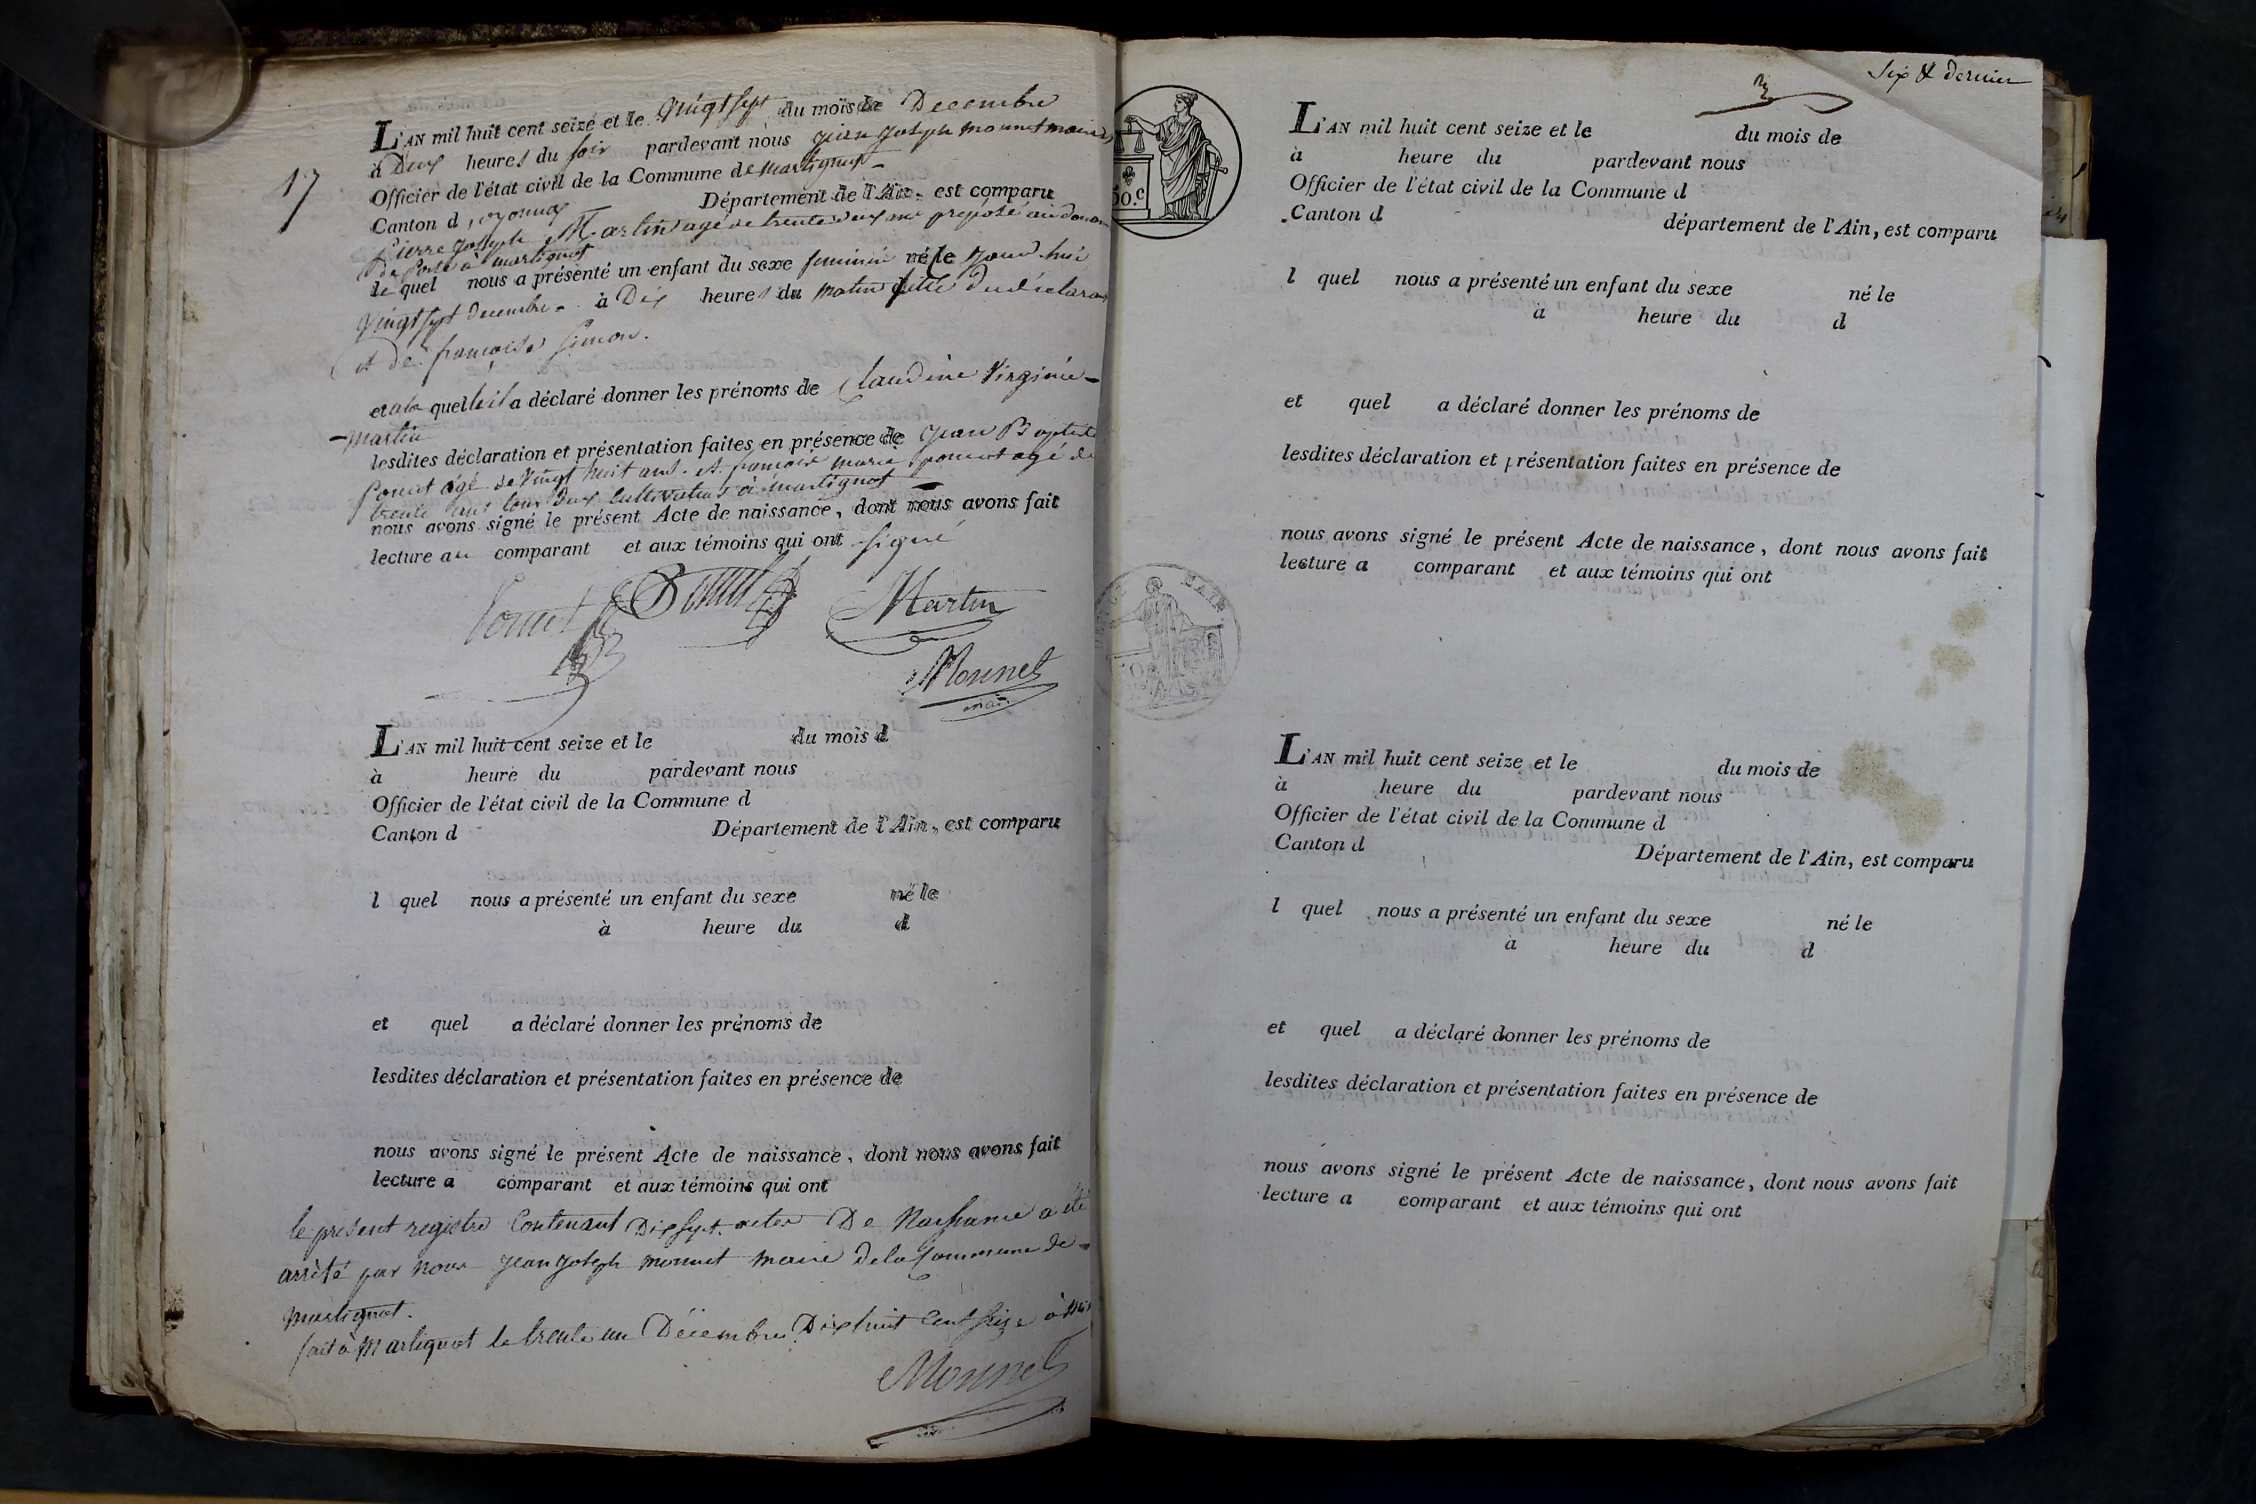 17
L'AN mil huit cent seize et le vingt sept du mois de Decembre
à Deux heures du soir pardevant nous jean joseph monnet maire
Officier de l'état civil de la Commune de martignat
Canton d'oyonnax Département de l'Ain, est comparu
Pierre joseph Martin agé de trente deux ans préposé aux douanes
de Poste à martignat
le quel nous a présenté un enfant du sexe feminin né le jour d'hui
vingt sept decembre à Dix heures du matin fille du déclarant
et de françoise Simon.
et a la quelle il a déclaré donner les prénoms de Claudine Virginie
martin
lesdites déclaration et présentation faites en présence de jean Baptiste
Poncet agé de vingt huit ans et françois marie poncet agé de
trente ans tous deux cultivateurs à martignat
nous avons signé le présent Acte de naissance, dont nous avons fait
lecture au comparant et aux témoins qui ont signé
Poncet Martin
Monnet
maire
L'AN mil huit cent seize et le du mois d
à heure du pardevant nous
Officier de l'état civil de la Commune d
Canton d Département de l'Ain, est comparu
l quel nous a présenté un enfant du sexe né le
à heure du d
et quel a déclaré donner les prénoms de
lesdites déclaration et présentation faites en présence de
nous avons signé le présent Acte de naissance, dont nous avons fait
lecture a comparant et aux témoins qui ont
le present registre Contenant Dix sept actes De Naissance a été
arrêté par nous jean joseph monnet maire de la Commune de
martignat.
fait à Martignat le trente un Décembre Dix huit Cent seize à
Monnet
Six & dernier
50.c
L'AN mil huit cent seize et le du mois de
à heure du pardevant nous
Officier de l'état civil de la Commune d
Canton d département de l'Ain, est comparu
l quel nous a présenté un enfant du sexe né le
à heure du d
et quel a déclaré donner les prénoms de
lesdites déclaration et présentation faites en présence de
nous avons signé le présent Acte de naissance, dont nous avons fait
lecture a comparant et aux témoins qui ont
L'AN mil huit cent seize et le du mois de
à heure du pardevant nous
Officier de l'état civil de la Commune d
Canton d Département de l'Ain, est comparu
l quel nous a présenté un enfant du sexe né le
à heure du d
et quel a déclaré donner les prénoms de
lesdites déclaration et présentation faites en présence de
nous avons signé le présent Acte de naissance, dont nous avons fait
lecture a comparant et aux témoins qui ont